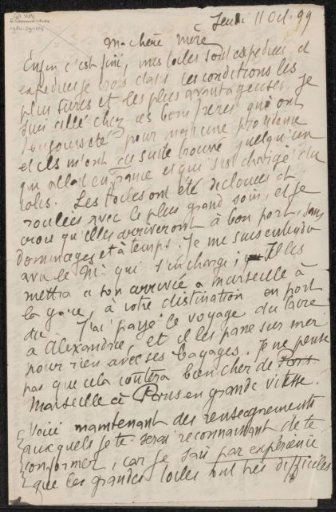 Jeudi 11 Oct. 99
Ma chère Mère
Enfin c'est fini, mes toiles sont expédiées, et
expédiées je crois dans les conditions les
plus sûres et les plus avantageuses. Je
suis allé chez les bons frères qui ont
toujours été pour moi une providence
et ils m'ont de suite trouvé quelqu'un
qui allait en France et qui s'est chargé du
colis. Les toiles ont été déclouées et
roulées avec le plus grand soin, et je
crois qu'elles arriveront à bon port, sans
dommages et à temps. Je me suis entendu
avec le Mr qui s'en charge; il les
mettra à son arrivée à Marseille à
la gare, à votre destination en port
dû. J'ai payé le voyage du Caire
à Alexandrie, et il les passe sur mer
pour rien avec ses bagages. Je ne pense
pas que cela coûtera bien cher de
Marseille à Paris en grande vitesse.
Voici maintenant des renseignements
auxquels je te serai reconnaissant de te
conformer, car je sais par expérience
que les grandes toiles sont très difficiles